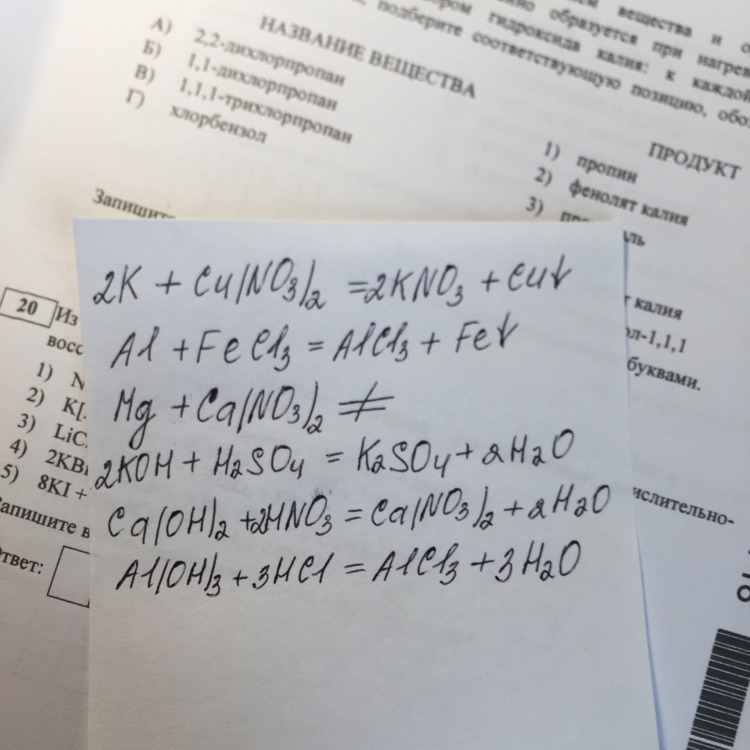 вещества и
образуется при
гидроксида калия: к каждой
подберите соответствующую позицию,
НАЗВАНИЕ ВЕЩЕСТВА
А) 2,2-дихлорпропан
Б) 1,1-дихлорпропан
В) 1,1,1-трихлорпропан
Г) хлорбензол
ПРОДУКТ
1) пропин
2) фенолят калия
3)
калия
буквами.
20 Из
1)
2) K[
3)
4)
5) 8KI +
Запишите
Ответ:
2K + Cu(NO3)2 = 2KNO3 + Cu↓
Al + FeCl3 = AlCl3 + Fe↓
Mg + Ca(NO3)2 ≠
2KOH + H2SO4 = K2SO4 + 2H2O
Ca(OH)2 + 2HNO3 = Ca(NO3)2 + 2H2O
Al(OH)3 + 3HCl = AlCl3 + 3H2O